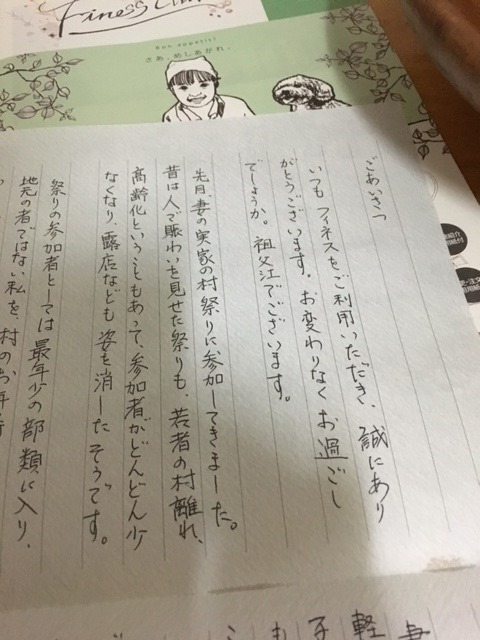 Finess Club
Bon appetit
さあ、めしあがれ。
ごあいさつ
いつもフィネスをご利用いただき、誠にあり
がとうございます。お変わりなくお過ごし
でしょうか。祖父江でございます。
先月、妻の実家の村祭りに参加してきました。
昔は人で賑わいを見せた祭りも、若者の村離れ、
高齢化ということもあって、参加者がどんどん少
なくなり、露店なども姿を消したそうです。
祭りの参加者としては最年少の部類に入り、
地元の者ではない私を、村のお年寄